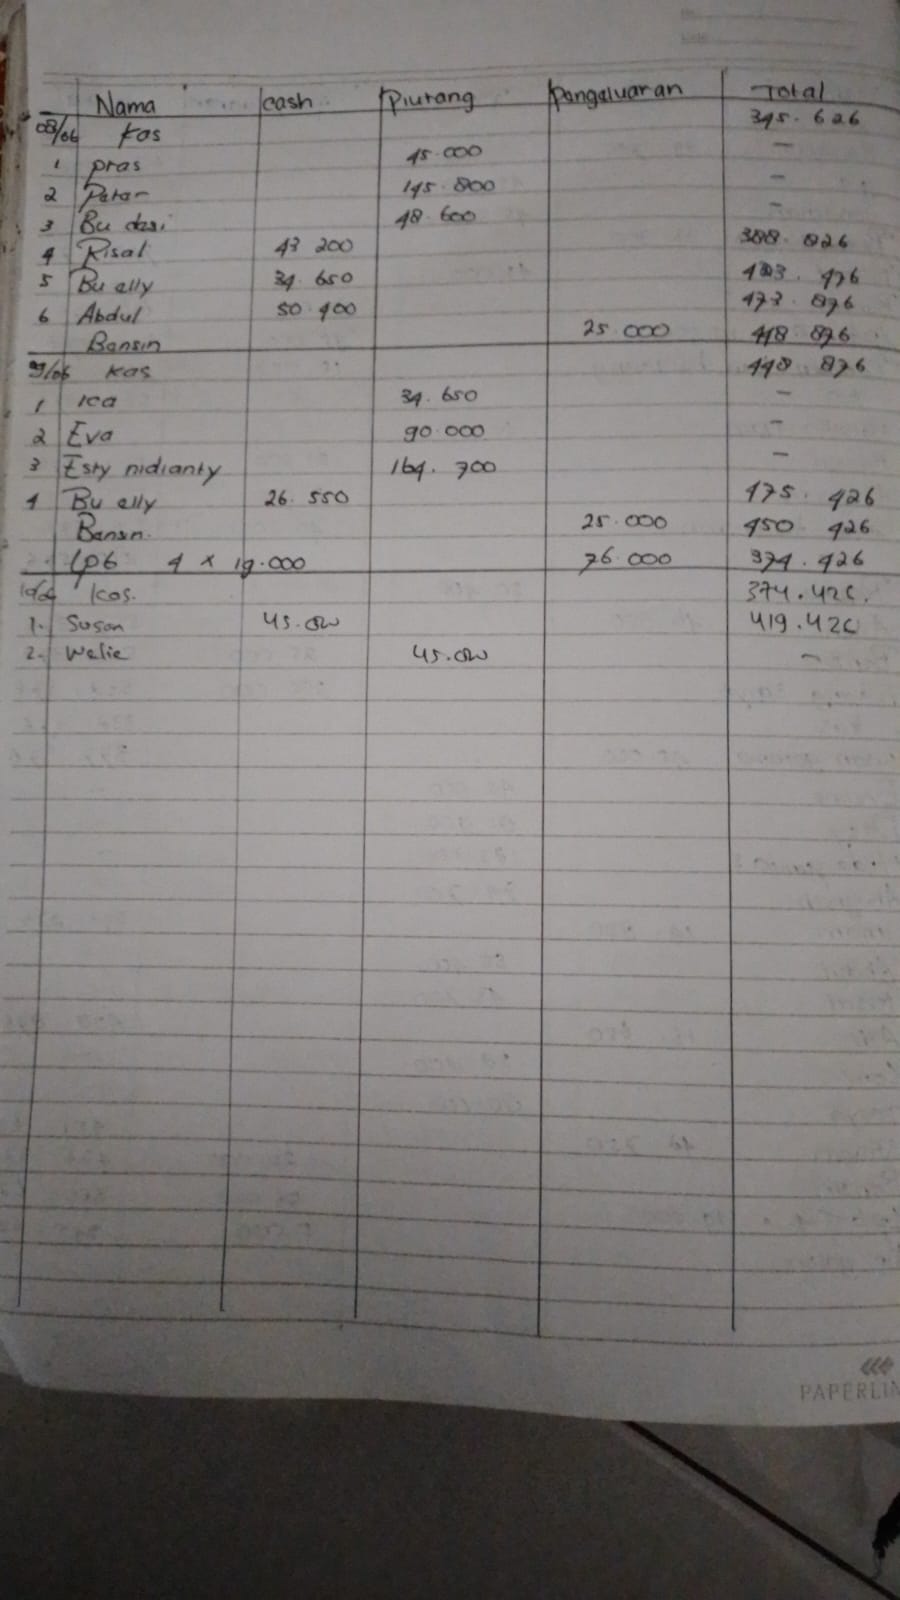 Nama cash Piutang Pengeluaran Total
08/06 Kas 345.626
1 Pras 45.000 -
2 Petar 145.800 -
3 Bu desi 48.600 -
4 Risal 43 200 388.826
5 Bu elly 34.650 423.476
6 Abdul 50.400 473.876
Bensin 25.000 448.876
9/06 Kas 448.876
1 Ica 34.650 -
2 Eva 90.000 -
3 Esty nidianty 164.700 -
4 Bu elly 26.550 475.426
Bensin. 25.000 450 426
LPG 4 x 19.000 76.000 374.426
10/06 Kas. 374.426.
1. Susan 45.000 419.426
2. Welie 45.000 -
PAPERLIN